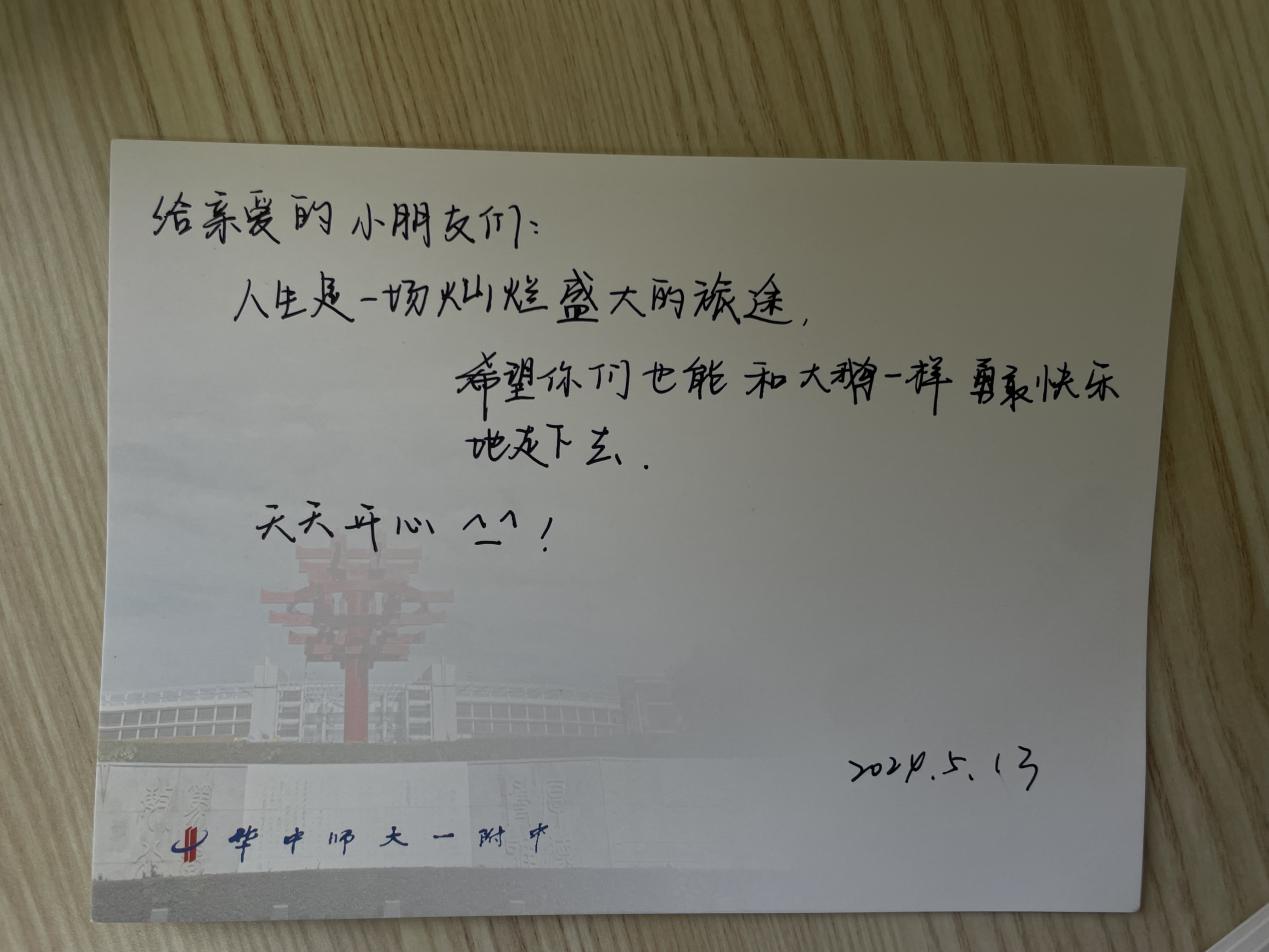 给亲爱的小朋友们：
人生是一场灿烂盛大的旅途，
希望你们也能和大鹅一样勇敢快乐
地走下去.
天天开心 ^_^！
2024.5.13
华中师大一附中